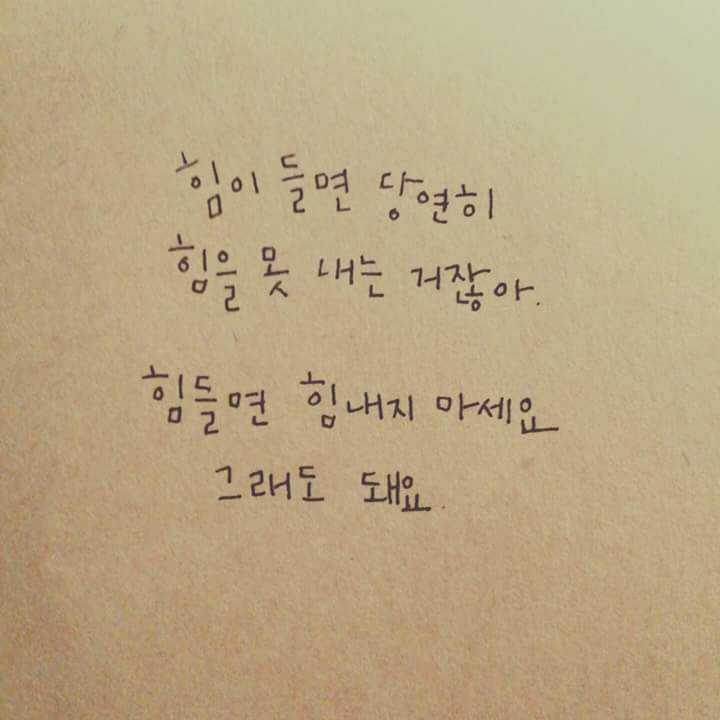 힘이 들면 당연히
힘을 못 내는 거잖아.
힘들면 힘내지 마세요
그래도 돼요.